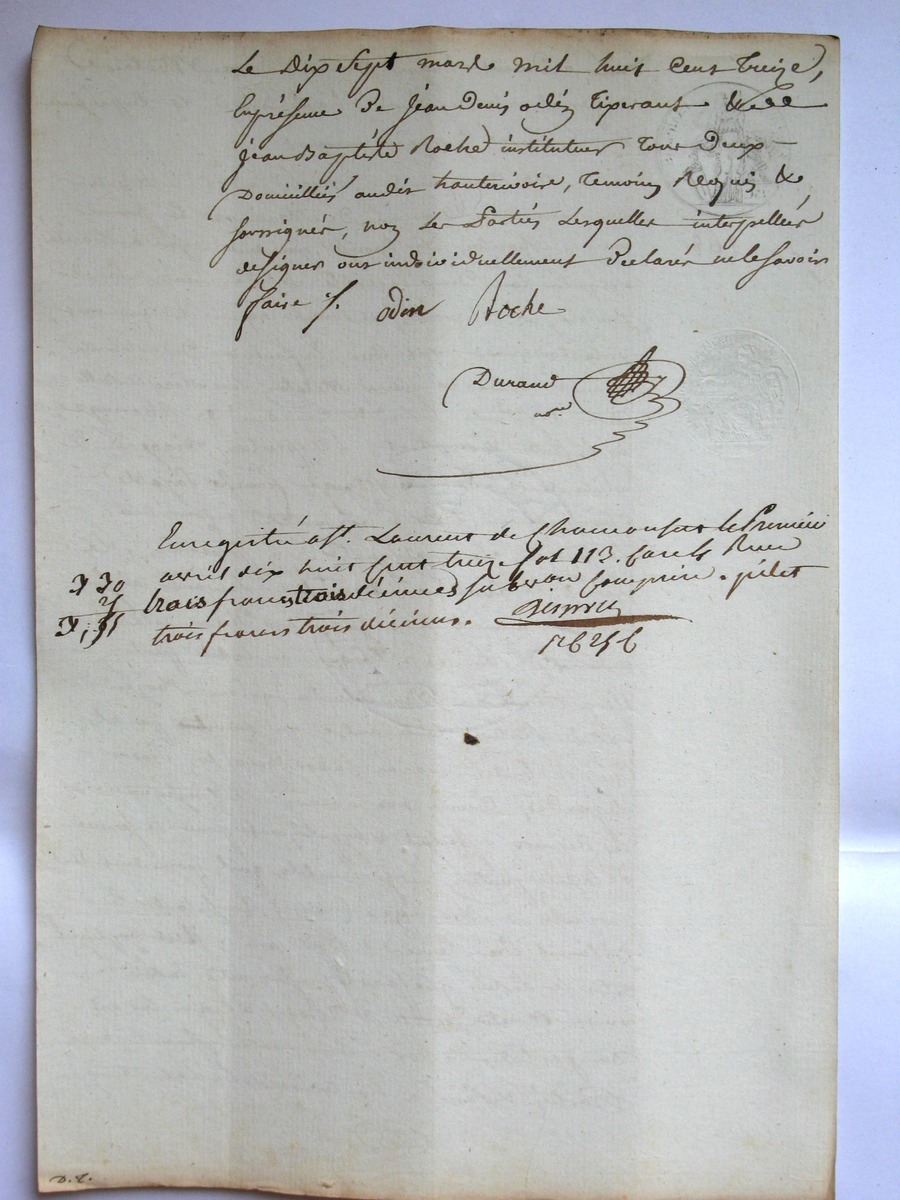 Le dix sept mars mil huit cent treize,
En présence de jean denis odin Tisserant & de
jean Baptiste Roche instituteur Tous Deux
Domicilliés audit hauterivoire, Temoins Requis &
soussignés, non les Parties Lesquelles interpellées
designer ont individuellement Declaré ne le savoir
faire ./. odin Roche
Durand
nre
Enregistré à St. Laurent de Chamousset le Premier
avril dix huit cent treize fol 113. Case
trois francs trois décimes
trois francs trois décimes.
3 30
3,
D. L.